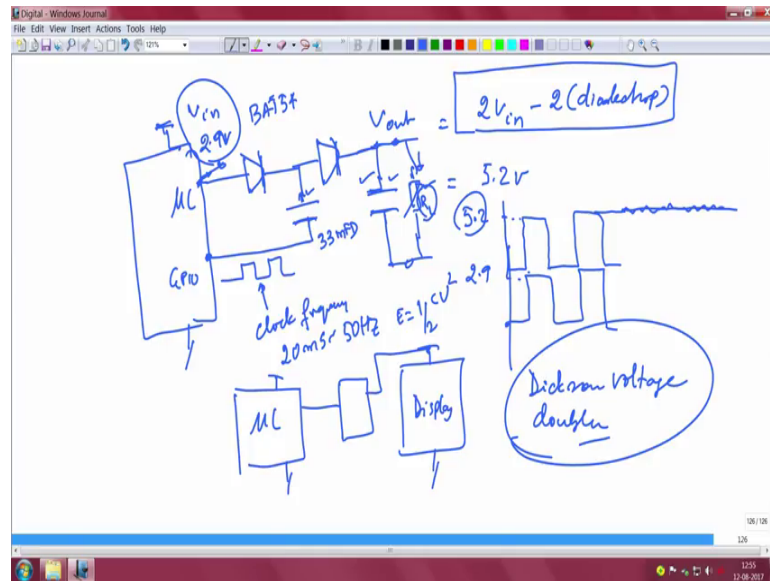 Digital - Windows Journal
File Edit View Insert Actions Tools Help
121%
B I
Vin
2.9V
BAT54
Vout
= 2Vin - 2(diodedrop)
μC
RL
= 5.2V
5.2
33mFD
GPIO
clock frequency
20ms ~ 50Hz
E = 1/2 CV²
2.9
μC
Display
Dickson voltage
doubler
126 / 126
126
12:55
12-08-2017